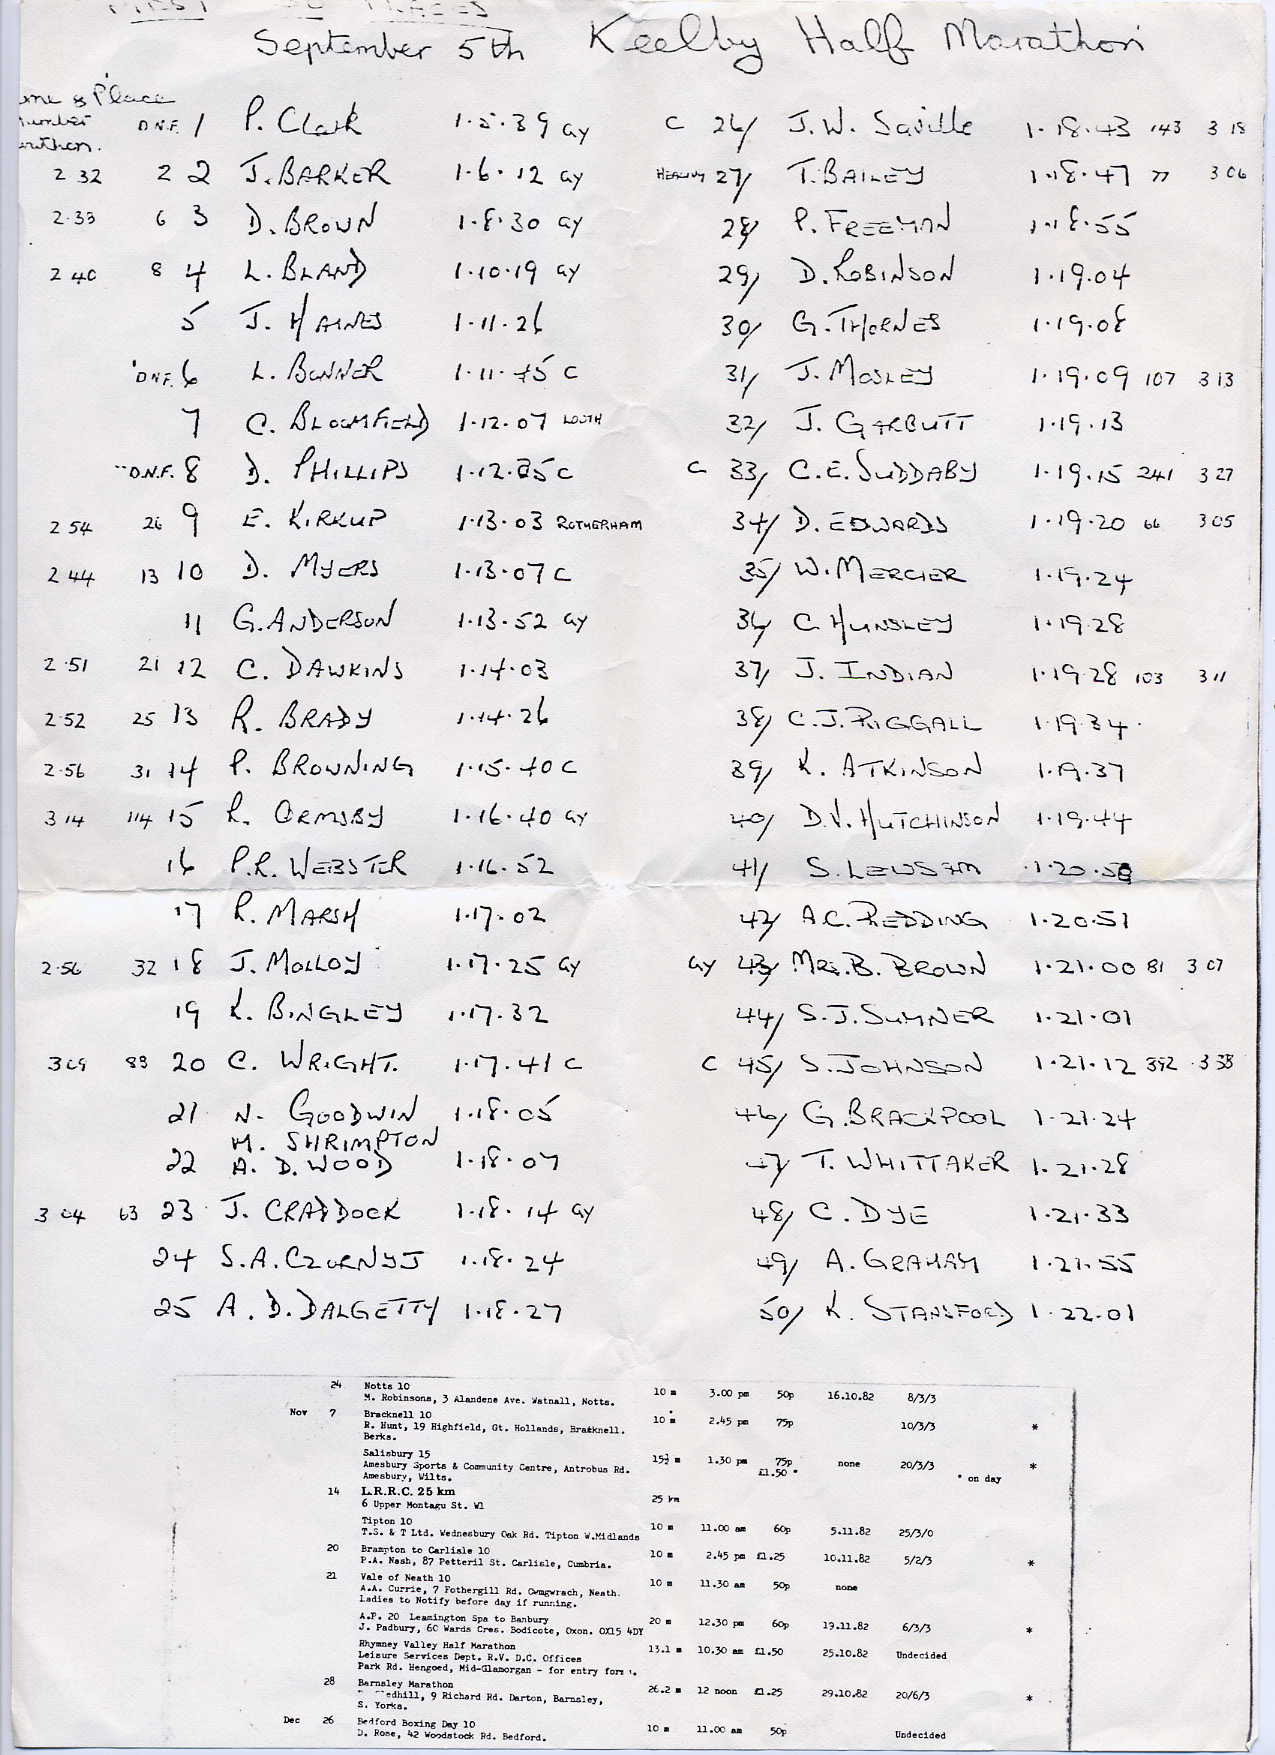 FIRST 50 PLACES
September 5th Keelby Half Marathon
Place
D.N.F. 1 P. Clark 1.5.39 GY
2 32 2 2 J. BARKER 1.6.12 GY
2.33 6 3 D. BROWN 1.8.30 GY
2 40 8 4 L. BLAND 1.10.19 GY
5 J. HAINES 1.11.26
D.N.F. 6 L. BONNER 1.11.45 C
7 C. BLOOMFIELD 1.12.07 LOUTH
D.N.F. 8 D. PHILLIPS 1.12.35 C
2 54 26 9 E. KIRKUP 1.13.03 ROTHERHAM
2 44 13 10 D. MYERS 1.13.07 C
11 G. ANDERSON 1.13.52 GY
2.51 21 12 C. DAWKINS 1.14.03
2.52 25 13 R. BRADY 1.14.26
2.56 31 14 P. BROWNING 1.15.40 C
3 14 114 15 R. ORMSBY 1.16.40 GY
16 P.R. WEBSTER 1.16.52
17 R. MARSH 1.17.02
2.56 32 18 J. MOLLOY 1.17.25 GY
19 K. BINGLEY 1.17.32
3 09 83 20 C. WRIGHT. 1.17.41 C
21 N. GOODWIN 1.18.05
M. SHRIMPTON
22 A. D. WOOD 1.18.07
3 04 63 23 J. CRADDOCK 1.18.14 GY
24 S.A. CZORNYJ 1.18.24
25 A. D. DALGETTY 1.18.27
C 26/ J.W. Saville 1.18.43 143 3 18
HEALING 27/ T. BAILEY 1.18.47 77 3 06
28/ P. FREEMAN 1.18.55
29/ D. ROBINSON 1.19.04
30/ G. THORNES 1.19.08
31/ J. MOSLEY 1.19.09 107 3 13
32/ J. GARBUTT 1.19.13
C 33/ C.E. SUDDABY 1.19.15 241 3 27
34/ D. EDWARDS 1.19.20 66 3 05
35/ W. MERCIER 1.19.24
36/ C HUNSLEY 1.19.28
37/ J. INDIAN 1.19.28 103 3 11
38/ C.J. RIGGALL 1.19.34
39/ K. ATKINSON 1.19.37
40/ D.V. HUTCHINSON 1.19.44
41/ S. LEWSAM
42/ A.C. REDDING 1.20.51
GY 43/ MRS. B. BROWN 1.21.00 81 3 07
44/ S.J. SUMNER 1.21.01
C 45/ S. JOHNSON 1.21.12 392 3 38
46/ G. BRACKPOOL 1.21.24
47/ T. WHITTAKER 1.21.28
48/ C. DYE 1.21.33
49/ A. GRAHAM 1.21.55
50/ K. STANSFORD 1.22.01
24 Notts 10
M. Robinsons, 3 Alandene Ave. Watnall, Notts. 10 m 3.00 pm 50p 16.10.82 8/3/3
Nov 7 Bracknell 10
R. Hunt, 19 Highfield, Gt. Hollands, Bracknell. 10 m 2.45 pm 75p 10/3/3 *
Berks.
Salisbury 15
Amesbury Sports & Community Centre, Antrobus Rd. 15½ m 1.30 pm 75p none 20/3/3 *
Amesbury, Wilts. £1.50 * * on day
14 L.R.R.C. 25 km
6 Upper Montagu St. W1 25 km
Tipton 10
T.S. & T Ltd. Wednesbury Oak Rd. Tipton W.Midlands 10 m 11.00 am 60p 5.11.82 25/3/0
20 Brampton to Carlisle 10
P.A. Nash, 87 Petteril St. Carlisle, Cumbria. 10 m 2.45 pm £1.25 10.11.82 5/2/3 *
21 Vale of Neath 10
A.A. Currie, 7 Fothergill Rd. Cwmgwrach, Neath. 10 m 11.30 am 50p none
Ladies to Notify before day if running.
A.P. 20 Leamington Spa to Banbury
J. Padbury, 60 Wards Cres. Bodicote, Oxon. OX15 4DY 20 m 12.30 pm 60p 19.11.82 6/3/3 *
Rhymney Valley Half Marathon
Leisure Services Dept. R.V. D.C. Offices 13.1 m 10.30 am £1.50 25.10.82 Undecided
Park Rd. Hengoed, Mid-Glamorgan - for entry form
28 Barnsley Marathon
9 Richard Rd. Darton, Barnsley, 26.2 m 12 noon £1.25 29.10.82 20/6/3 *
S. Yorks.
Dec 26 Bedford Boxing Day 10
D. Rose, 42 Woodstock Rd. Bedford. 10 m 11.00 am 50p Undecided